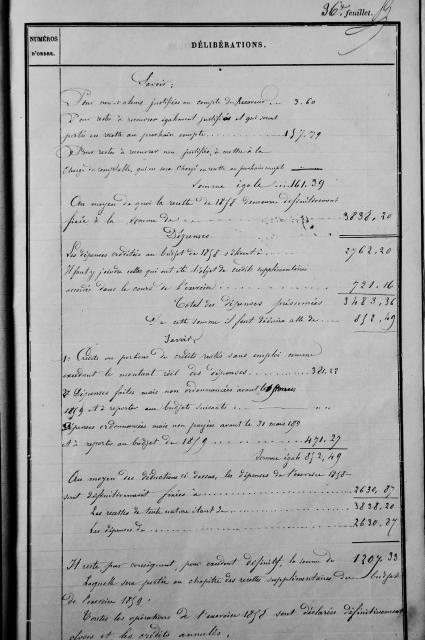 36e feuillet.
NUMÉROS D'ORDRE.
DÉLIBÉRATIONS.
Savoir:
Pour non-valeurs justifiées au compte du Receveur 3.60
Pour restes à recouvrer également justifiés et qui seront
portés en recette au prochain compte 157.79
Pour restes à recouvrer non justifiés, à mettre à la
charge du comptable, qui en sera chargé en recette au prochain compte —
Somme égale 161.39
Au moyen de quoi la recette de 1858 demeure définitivement
fixée à la somme de 3838.20
Dépenses
Les dépenses créditées au budget de 1858 s'élèvent à 2762.20
Il faut y joindre celles qui ont été l'objet de crédits supplémentaires
accordés dans le cours de l'exercice 721.16
Total des dépenses présumées 3483.36
De cette somme il faut déduire celle de 852.49
Savoir
1° Crédits ou portions de crédits restés sans emploi comme
excédant le montant réel des dépenses 381.22
2° Dépenses faites mais non ordonnancées avant le
1859 et à reporter au budget suivants " "
Dépenses ordonnancées mais non payées avant le 31 mars 1859
et à reporter au budget de 1859 471.27
Somme égale 852.49
Au moyen des déductions ci dessus, les dépenses de l'exercice 1858
sont définitivement fixées à 2630.87
Les recettes de toute nature étant de 3838.20
Les dépenses de 2630.87
Il reste par conséquent, pour excédent définitif, la somme de 1207.33
Laquelle sera portée au chapitre des recettes supplémentaires du budget
de l'exercice 1859.
Toutes les opérations de l'exercice 1858 sont déclarées définitivement
closes et les crédits annulés.